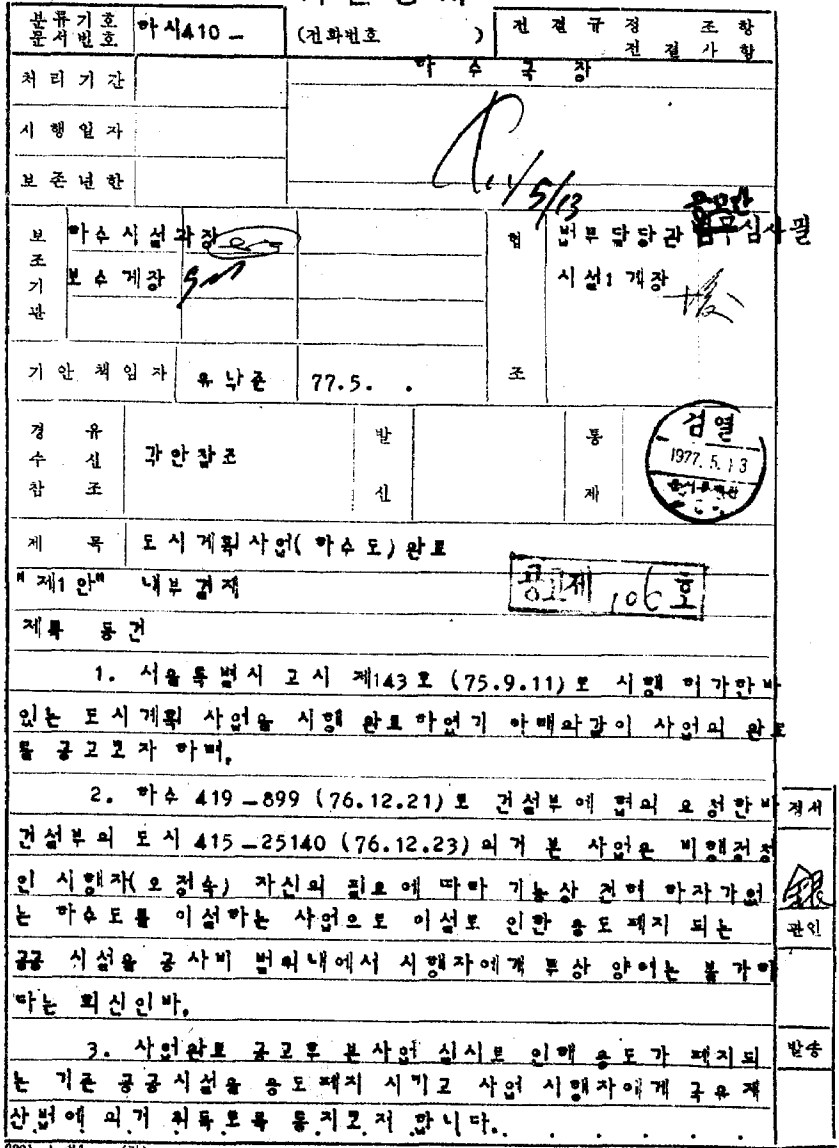 분류기호 문서번호 하시410- (전화번호 ) 전결규정 조항 전결사항
하수국장
처리기간
시행일자
5/13
보존년한
보조기관 하수시설과장 협조 법무담당관 법무심사필
보수계장 시설1계장
기안책임자 유낙준 77.5. .
경유 수신 참조 각안참조 발신 통제 검열 1977.5.13
제목 도시계획사업(하수도)완료
"제1안" 내부결재 공고제 106호
제목 동건
1. 서울특별시 고시 제143호 (75.9.11)로 시행 허가한바
있는 도시계획 사업을 시행 완료하였기 아래와같이 사업의 완료
를 공고코자 하며,
2. 하수 419-899 (76.12.21)로 건설부에 협의 요청한바
건설부의 도시 415-25140 (76.12.23)의거 본 사업은 비행정청
인 시행자(오정숙) 자신의 필요에 따라 기능상 전혀 하자가없
는 하수도를 이설하는 사업으로 이설로 인한 용도폐지 되는
공공 시설을 공사비 범위내에서 시행자에게 무상 양여는 불가하
다는 회신인바,
3. 사업완료 공고후 본사업 실시로 인해 용도가 폐지되
는 기존 공공시설을 용도폐지 시키고 사업 시행자에게 국유재
산법에 의거 취득토록 통지코저 합니다.
정서
관인
발송